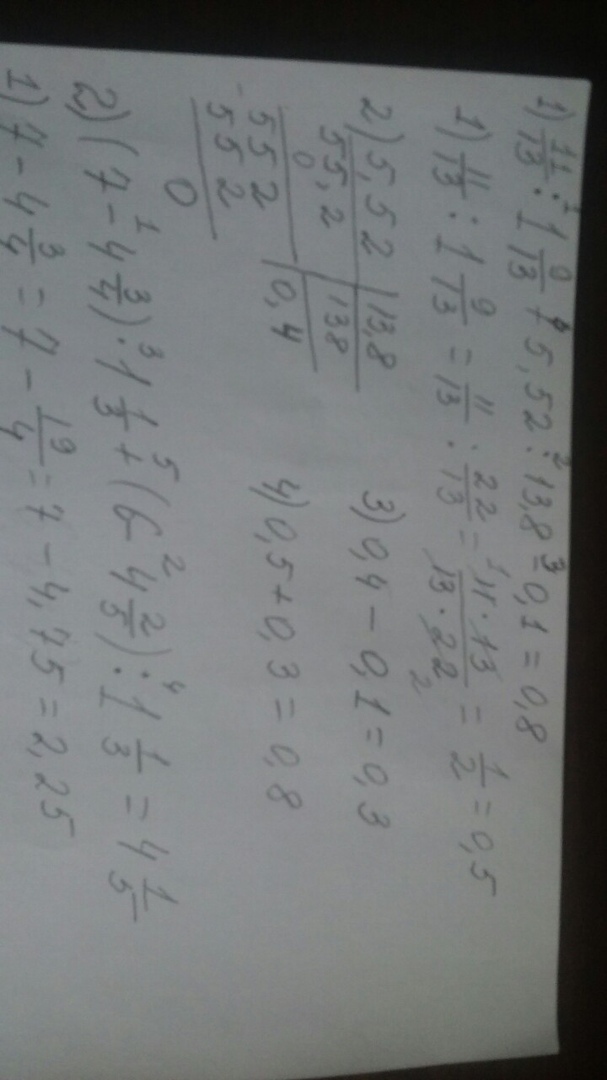 1) 11/13 : 1 9/13 + 5,52 : 13,8 - 0,1 = 0,8
1) 11/13 : 1 9/13 = 11/13 : 22/13 = 11·13/13·22 = 1/2 = 0,5
2) 5,52 | 13,8
55,2 | 138
0 | 0,4
- 552
552
0
3) 0,4 - 0,1 = 0,3
4) 0,5 + 0,3 = 0,8
2) (7 - 4 3/4) : 1 1/3 + (6 4 2/5) : 1 1/3 = 4 1/5
1) 7 - 4 3/4 = 7 - 19/4 = 7 - 4,75 = 2,25